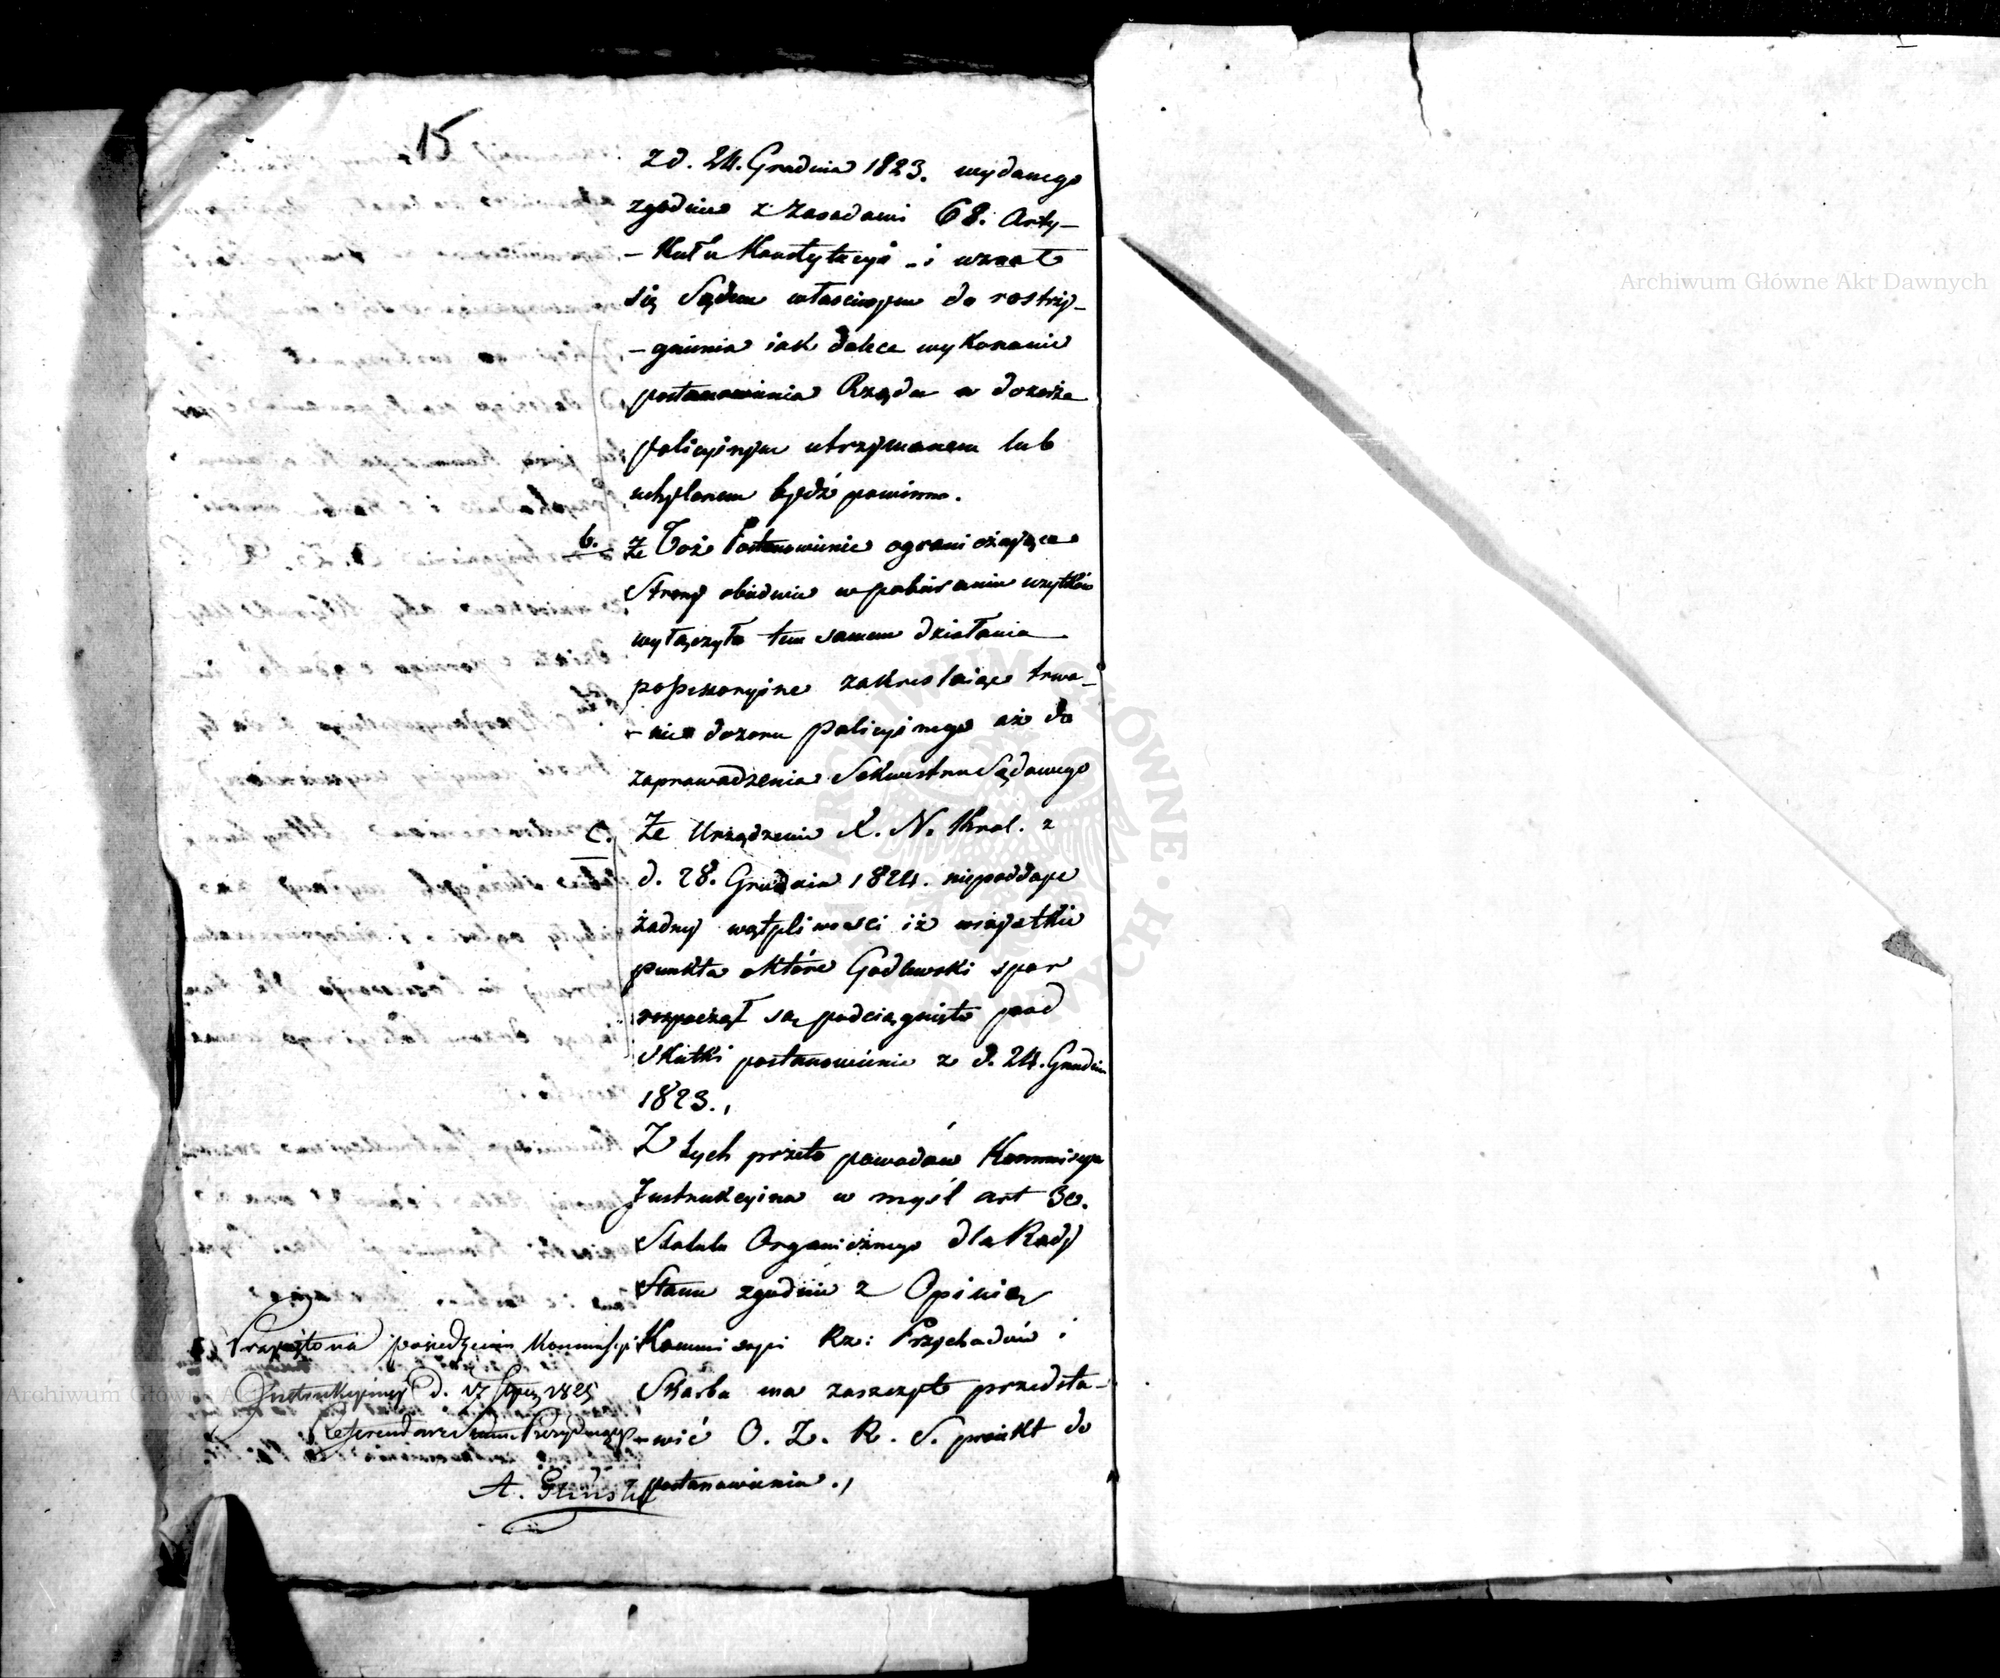 15
z d. 24. Grudnia 1823. wydanego
zgodnie z zasadami 68. Arty-
-kułu Konstytucyi - i uznał
się Sądem właściwym do rostrzy-
-gnienia iak dalece wykonanie
postanowienia Rządu w dozorze
policyinym utrzymanem lub
uchylonem bydź powinno.
b. Że Toż Postanowienie ograniczaiące
Strony obiedwie w pobieraniu użytków
wyłączyło tem samem działania
possessoryine zakreslaiąc trwa-
-nie dozoru policyinego aż do
zaprowadzenia Sekwestru Sądowego
C. Że Urządzenie X. N. Król. z
d. 28. Grudnia 1824. niepoddaje
żadney wątpliwości iż wszystkie
punkta o które Godlewski spor
rozpoczął są podciągnięte pod
skutki postanowienia z d. 24. Grudnia
1823.,
Z tych przeto powodów Kommissya
Instrukcyina w myśl art 30.
Statutu Organicznego dla Rady
Stanu zgodnie z Opinią
Kommissyi Rz: Przychodów i
Skarbu ma zaszczyt przedsta-
-wić O. Z. R. S. proiekt do
postanowienia.,
Przyięto na posiedzeniu Kommissyi
Instrukcyiney d. 17 1825
Referendarz Stanu Prezyduiący
A.
Archiwum Główne Akt Dawnych
Archiwum Główne Akt Dawnych
ARCHIWUM GŁÓWNE AKT DAWNYCH